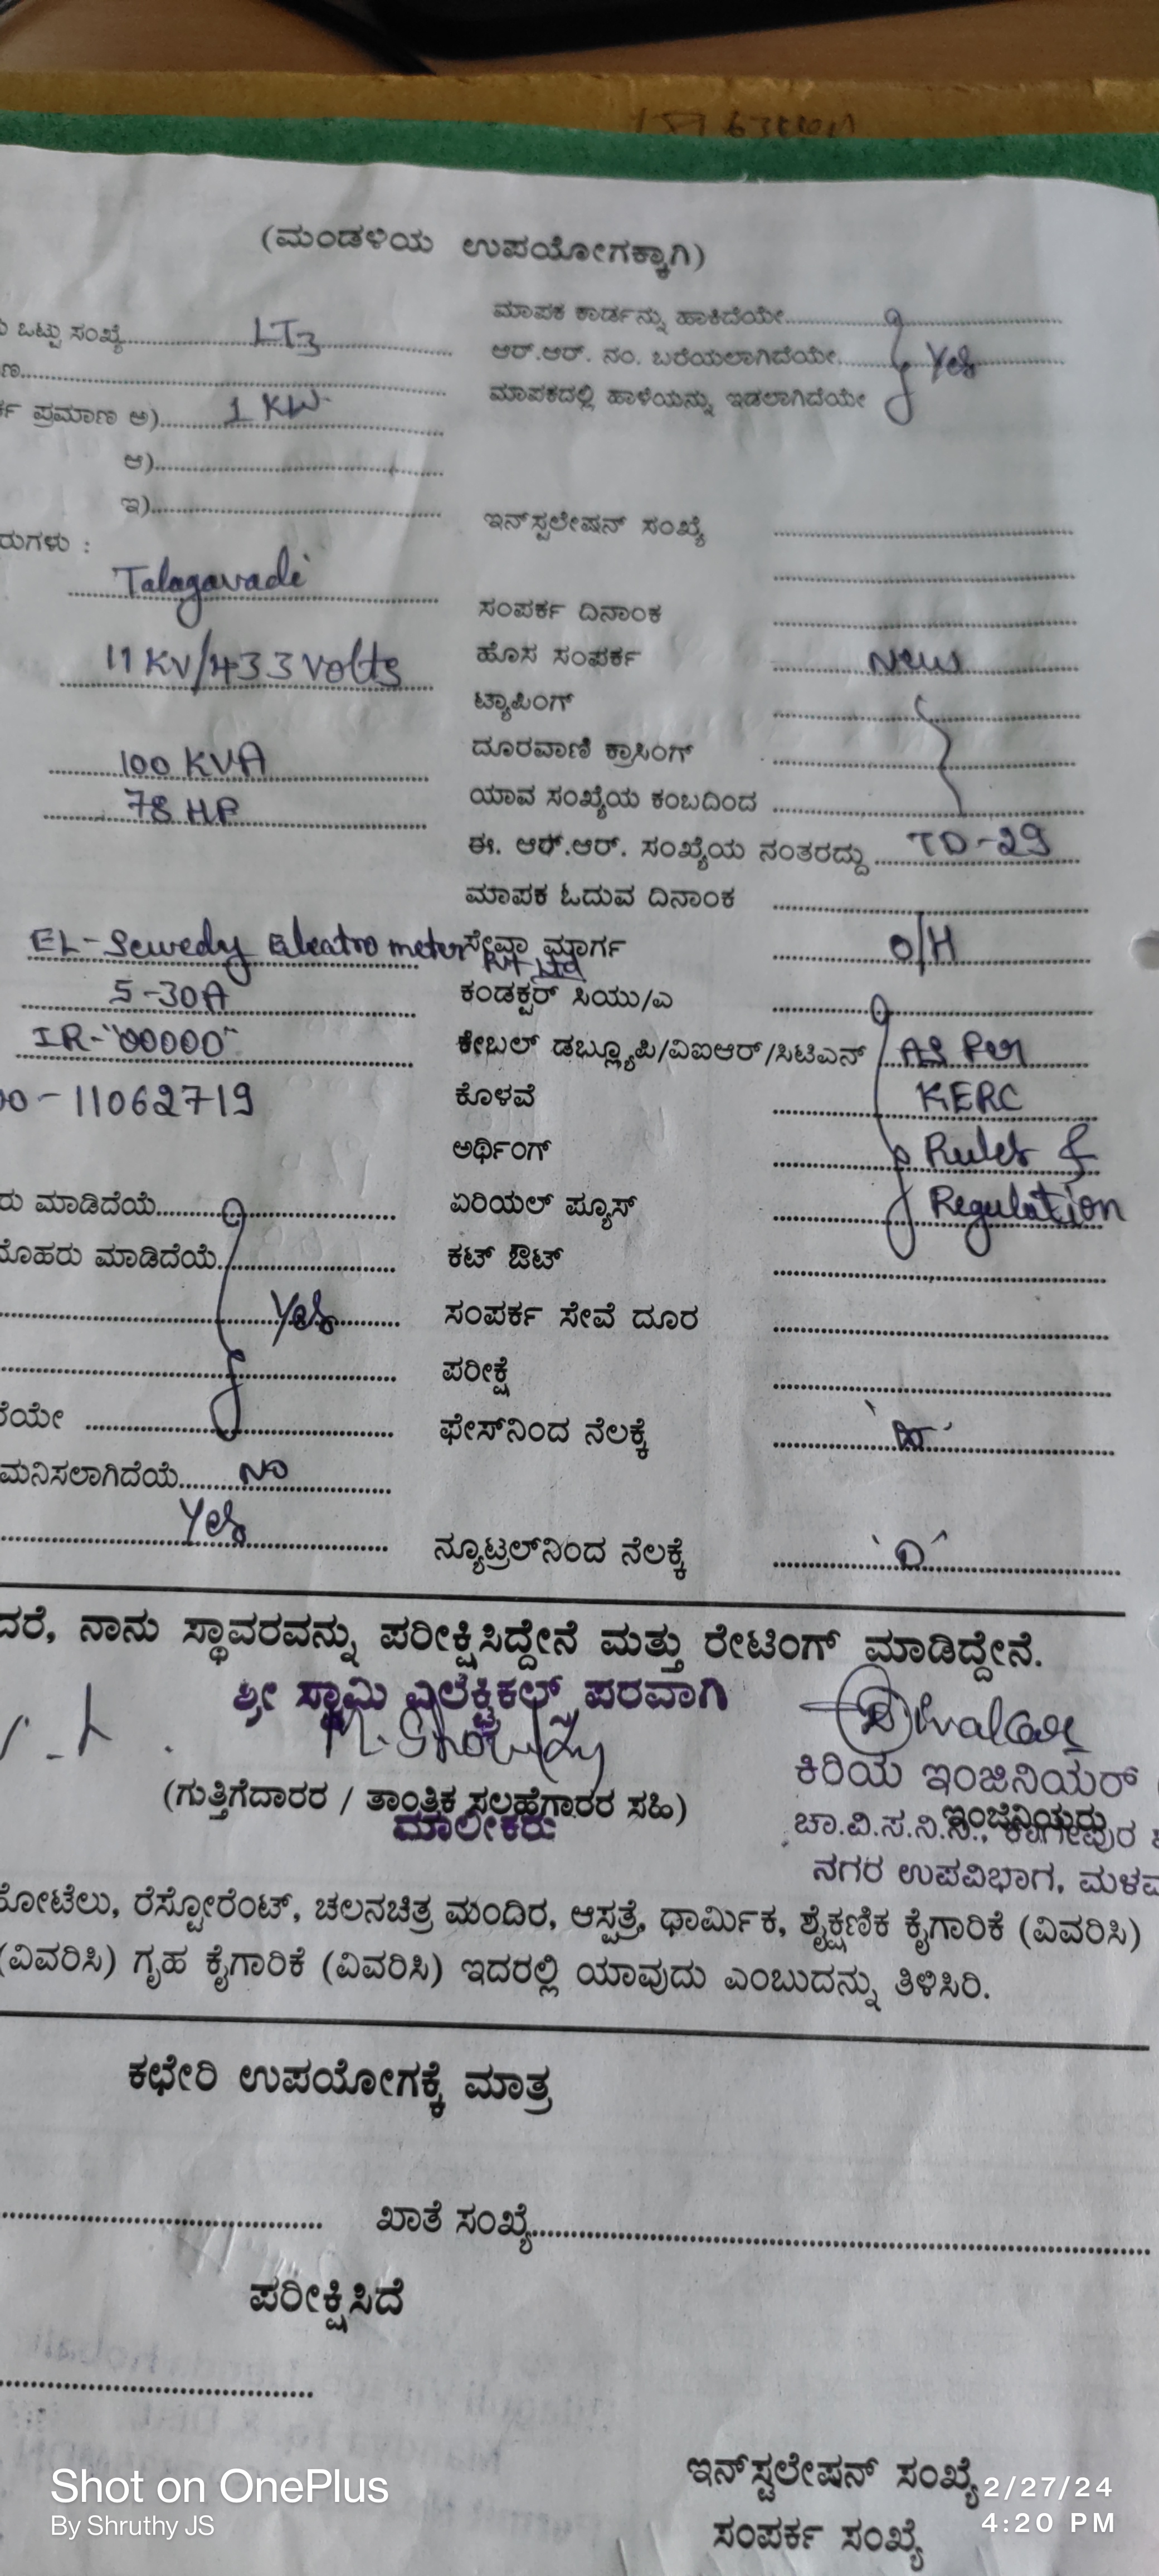 (ಮಂಡಳಿಯ ಉಪಯೋಗಕ್ಕಾಗಿ)
ಒಟ್ಟು ಸಂಖ್ಯೆ LT3
ಪ್ರಮಾಣ ಅ) 1 KW
ಆ)
ಇ)
ರುಗಳು :
Talagavadi
11 KV/433 Volts
100 KVA
78 HP
EL-Sewedy Eleatro meter Pvt Ltd
5-30A
IR-"00000"
00-11062719
ರು ಮಾಡಿದೆಯೆ
ಮೊಹರು ಮಾಡಿದೆಯೆ
Yes
ಯೇ
ಮನಿಸಲಾಗಿದೆಯೆ NO
Yes
ಮಾಪಕ ಕಾರ್ಡನ್ನು ಹಾಕಿದೆಯೇ
ಆರ್.ಆರ್. ನಂ. ಬರೆಯಲಾಗಿದೆಯೇ Yes
ಮಾಪಕದಲ್ಲಿ ಹಾಳೆಯನ್ನು ಇಡಲಾಗಿದೆಯೇ
ಇನ್‌ಸ್ಟಲೇಷನ್ ಸಂಖ್ಯೆ
ಸಂಪರ್ಕ ದಿನಾಂಕ
ಹೊಸ ಸಂಪರ್ಕ New
ಟ್ಯಾಪಿಂಗ್
ದೂರವಾಣಿ ಕ್ರಾಸಿಂಗ್
ಯಾವ ಸಂಖ್ಯೆಯ ಕಂಬದಿಂದ
ಈ. ಆರ್.ಆರ್. ಸಂಖ್ಯೆಯ ನಂತರದ್ದು TD-29
ಮಾಪಕ ಓದುವ ದಿನಾಂಕ
ಸೇವಾ ಮಾರ್ಗ O/H
ಕಂಡಕ್ಟರ್ ಸಿಯು/ಎ
ಕೇಬಲ್ ಡಬ್ಲ್ಯೂಪಿ/ವಿಐಆರ್/ಸಿಟಿಎನ್ AS Per
ಕೊಳವೆ KERC
ಅರ್ಥಿಂಗ್ Rules &
ಏರಿಯಲ್ ಫ್ಯೂಸ್ Regulation
ಕಟ್ ಔಟ್
ಸಂಪರ್ಕ ಸೇವೆ ದೂರ
ಪರೀಕ್ಷೆ
ಫೇಸ್‌ನಿಂದ ನೆಲಕ್ಕೆ
ನ್ಯೂಟ್ರಲ್‌ನಿಂದ ನೆಲಕ್ಕೆ
ದರೆ, ನಾನು ಸ್ಥಾವರವನ್ನು ಪರೀಕ್ಷಿಸಿದ್ದೇನೆ ಮತ್ತು ರೇಟಿಂಗ್ ಮಾಡಿದ್ದೇನೆ.
ಶ್ರೀ ಸ್ವಾಮಿ ಎಲೆಕ್ಟ್ರಿಕಲ್ಸ್ ಪರವಾಗಿ
(ಗುತ್ತಿಗೆದಾರರ / ತಾಂತ್ರಿಕ ಸಲಹೆಗಾರರ ಸಹಿ)
ಮಾಲೀಕರು
ಕಿರಿಯ ಇಂಜಿನಿಯರ್
ಇಂಜಿನಿಯರು
ಚಾ.ವಿ.ಸ.ನಿ.ನಿ.,
ನಗರ ಉಪವಿಭಾಗ, ಮಳವ
ಹೋಟೆಲು, ರೆಸ್ಟೋರೆಂಟ್, ಚಲನಚಿತ್ರ ಮಂದಿರ, ಆಸ್ಪತ್ರೆ, ಧಾರ್ಮಿಕ, ಶೈಕ್ಷಣಿಕ ಕೈಗಾರಿಕೆ (ವಿವರಿಸಿ)
(ವಿವರಿಸಿ) ಗೃಹ ಕೈಗಾರಿಕೆ (ವಿವರಿಸಿ) ಇದರಲ್ಲಿ ಯಾವುದು ಎಂಬುದನ್ನು ತಿಳಿಸಿರಿ.
ಕಛೇರಿ ಉಪಯೋಗಕ್ಕೆ ಮಾತ್ರ
ಖಾತೆ ಸಂಖ್ಯೆ
ಪರೀಕ್ಷಿಸಿದೆ
ಇನ್‌ಸ್ಟಲೇಷನ್ ಸಂಖ್ಯೆ
ಸಂಪರ್ಕ ಸಂಖ್ಯೆ
Shot on OnePlus
By Shruthy JS
2/27/24
4:20 PM